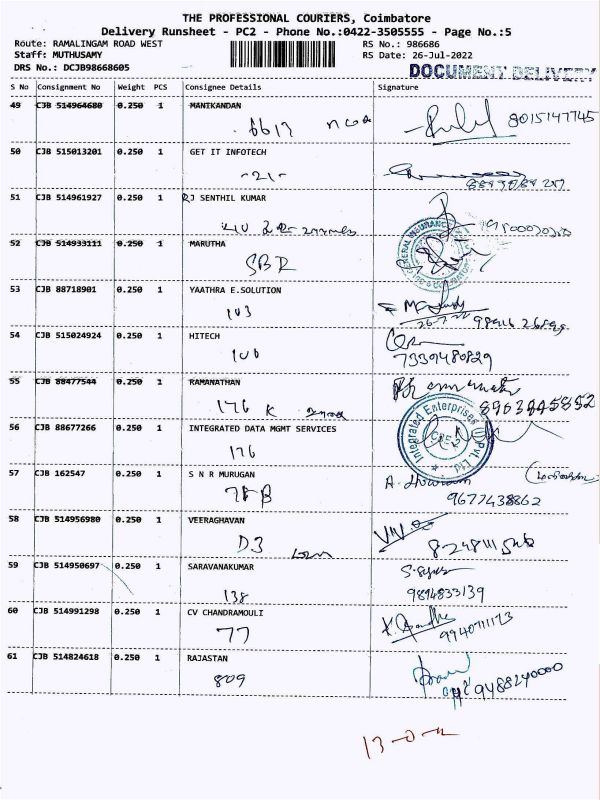 THE PROFESSIONAL COURIERS, Coimbatore
Delivery Runsheet - PC2 - Phone No.:0422-3505555 - Page No.:5
Route: RAMALINGAM ROAD WEST RS No.: 986686
Staff: MUTHUSAMY RS Date: 26-Jul-2022
DRS No.: DCJB98668605 DOCUMENT DELIVERY
S No Consignment No Weight PCS Consignee Details Signature
49 CJB 514964680 0.250 1 MANIKANDAN
8015147745
50 CJB 515013201 0.250 1 GET IT INFOTECH
-21-
51 CJB 514961927 0.250 1 RJ SENTHIL KUMAR
52 CJB 514933111 0.250 1 MARUTHA
53 CJB 88718901 0.250 1 YAATHRA E.SOLUTION
103
54 CJB 515024924 0.250 1 HITECH
106 7339480829
55 CJB 88477544 0.250 1 RAMANATHAN
176 K
56 CJB 88677266 0.250 1 INTEGRATED DATA MGMT SERVICES
Integrated Enterprises
176
57 CJB 162547 0.250 1 S N R MURUGAN
78 B 9677438862
58 CJB 514956980 0.250 1 VEERAGHAVAN
D3
59 CJB 514950697 0.250 1 SARAVANAKUMAR
138 9894833139
60 CJB 514991298 0.250 1 CV CHANDRAMOULI
77 9940711173
61 CJB 514824618 0.250 1 RAJASTAN
809 9488240000